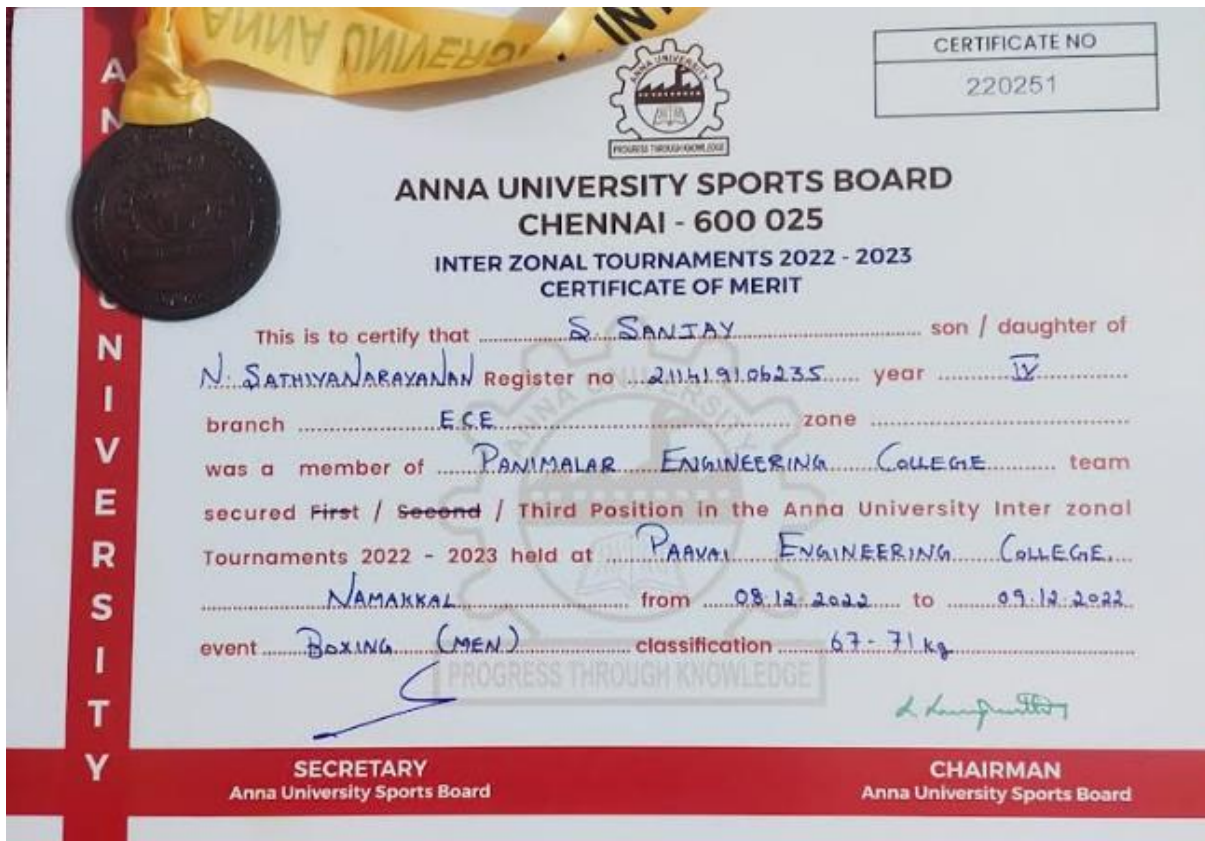 ANNA UNIVERSITY
CERTIFICATE NO
220251
ANNA UNIVERSITY
PROGRESS THROUGH KNOWLEDGE
ANNA UNIVERSITY SPORTS BOARD
CHENNAI - 600 025
INTER ZONAL TOURNAMENTS 2022 - 2023
CERTIFICATE OF MERIT
This is to certify that S. SANJAY son / daughter of
N. SATHIYANARAYANAN Register no 211419106235 year IV
branch ECE zone
was a member of PANIMALAR ENGINEERING COLLEGE team
secured First / Second / Third Position in the Anna University Inter zonal
Tournaments 2022 - 2023 held at PAAVAI ENGINEERING COLLEGE,
NAMAKKAL from 08.12.2022 to 09.12.2022
event BOXING (MEN) classification 67-71 kg
PROGRESS THROUGH KNOWLEDGE
SECRETARY
Anna University Sports Board
CHAIRMAN
Anna University Sports Board
ANNA UNIVERSITY